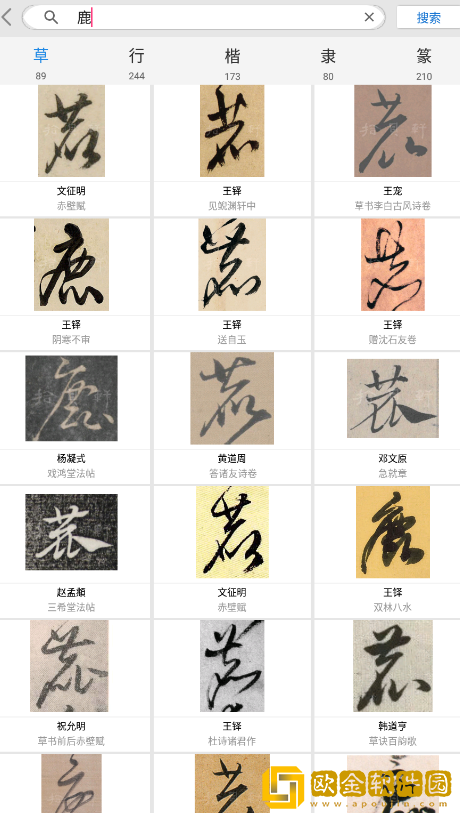 鹿
搜索
草 行 楷 隶 篆
89 244 173 80 210
文征明 王铎 王宠
赤壁赋 见皖渊轩中 草书李白古风诗卷
王铎 王铎 王铎
阴寒不审 送自玉 赠沈石友卷
杨凝式 黄道周 邓文原
戏鸿堂法帖 答诸友诗卷 急就章
赵孟頫 文征明 王铎
三希堂法帖 赤壁赋 双林八水
祝允明 王铎 韩道亨
草书前后赤壁赋 杜诗诸君作 草诀百韵歌
欧金软件园
www.apoutin.com